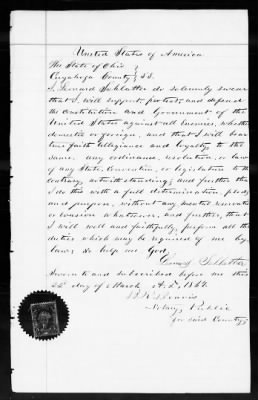 United States of America
The State of Ohio
Cuyahoga County } SS.
I, Leonard Schlatter do solemnly swear
that I will support, protect, and defend
the Constitution and Government of the
United States against all Enemies, whether
domestic or foreign, and that I will bear
true faith, allegiance and loyalty to the
same, any ordinance, resolution, or law
of any State, Convention, or legislature to the
contrary, notwithstanding; and further that
I do this with a full determination, pledge
and purpose, without any mental reservation
or evasion whatsoever, and further, that
I will well and faithfully, perform all the
duties which may be required of me by
law; so help me God.
Schlatter
Sworn to and subscribed before me this
22d day of March A.D., 1862
Notary Public
for said County